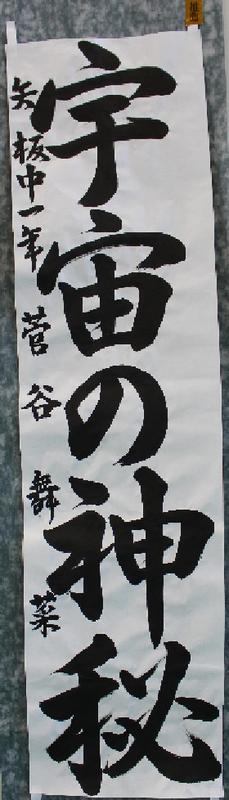 宇宙の神秘
矢板中一年 菅谷舞菜